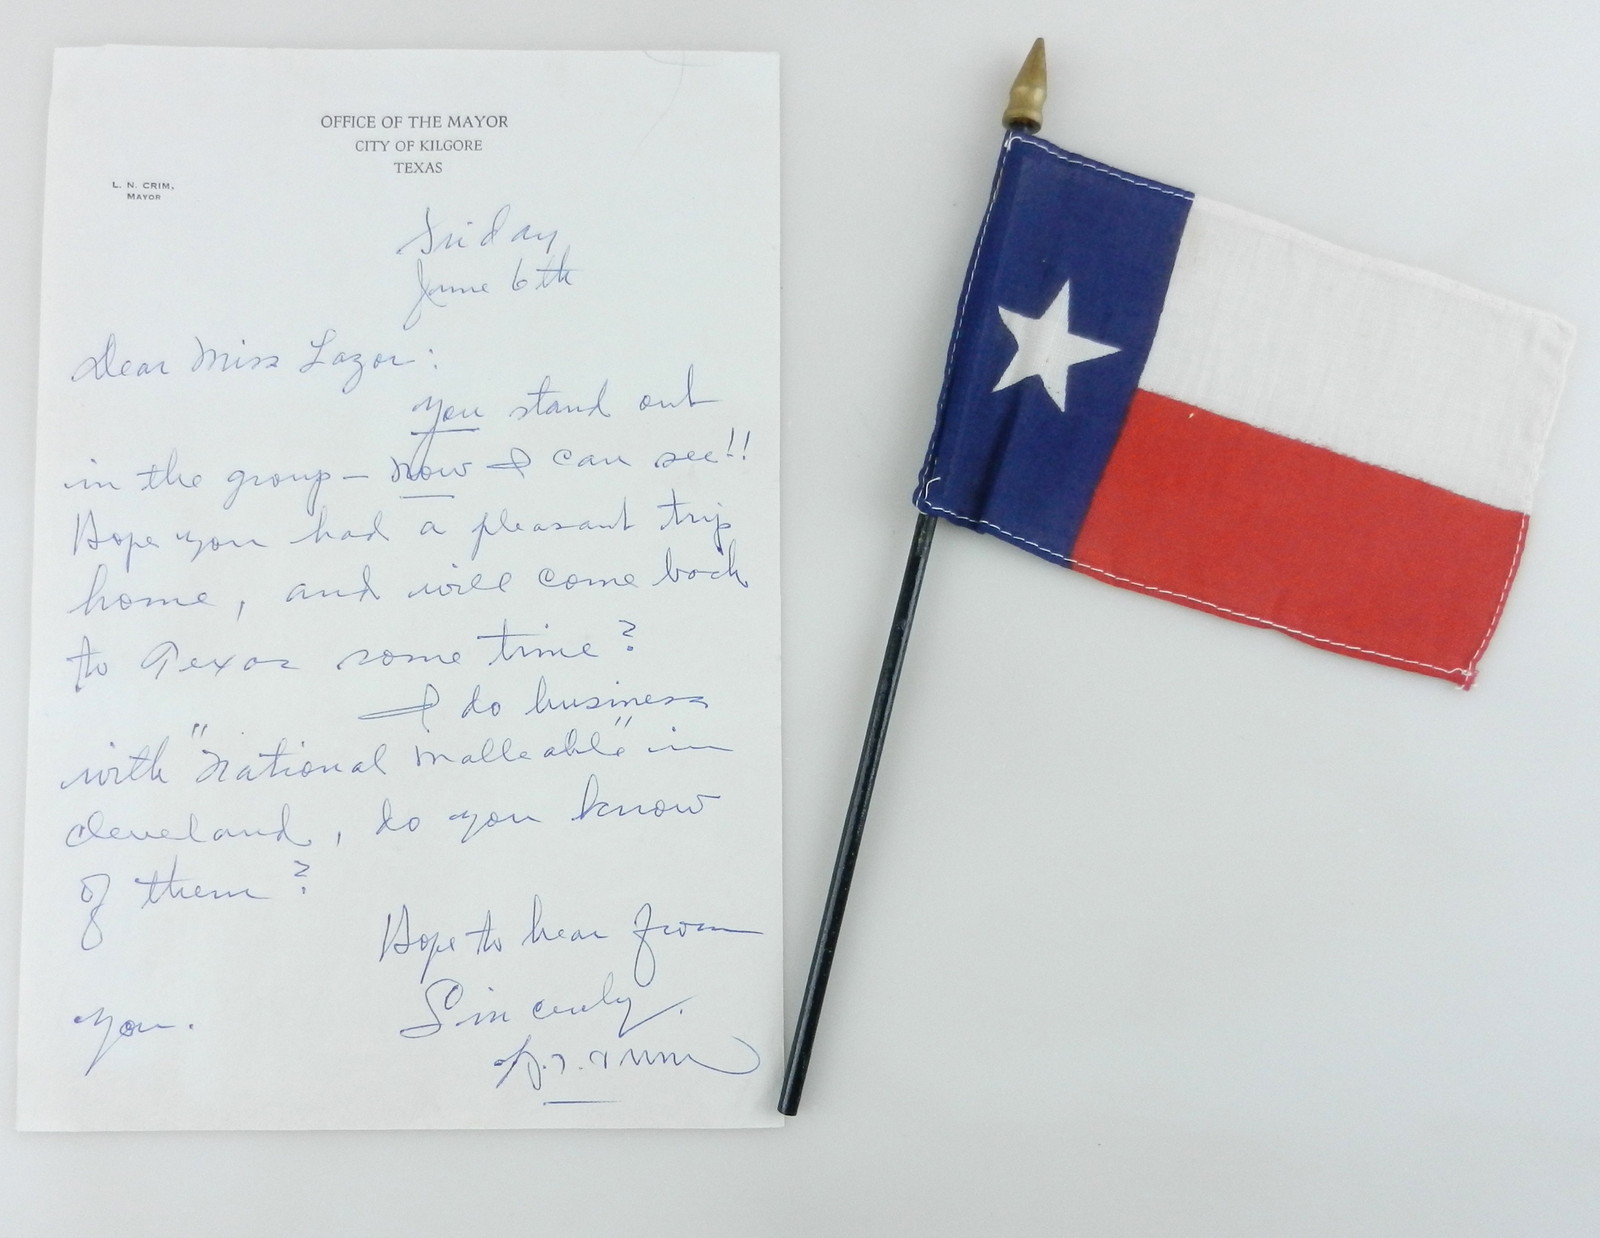 OFFICE OF THE MAYOR
CITY OF KILGORE
TEXAS
L. N. CRIM,
MAYOR
Friday
June 6th
Dear Miss Lazor:
You stand out
in the group — now I can see!!
Hope you had a pleasant trip
home, and will come back
to Texas some time?
I do business
with "National Malleable" in
Cleveland, do you know
of them?
Hope to hear from
you.
Sincerely.